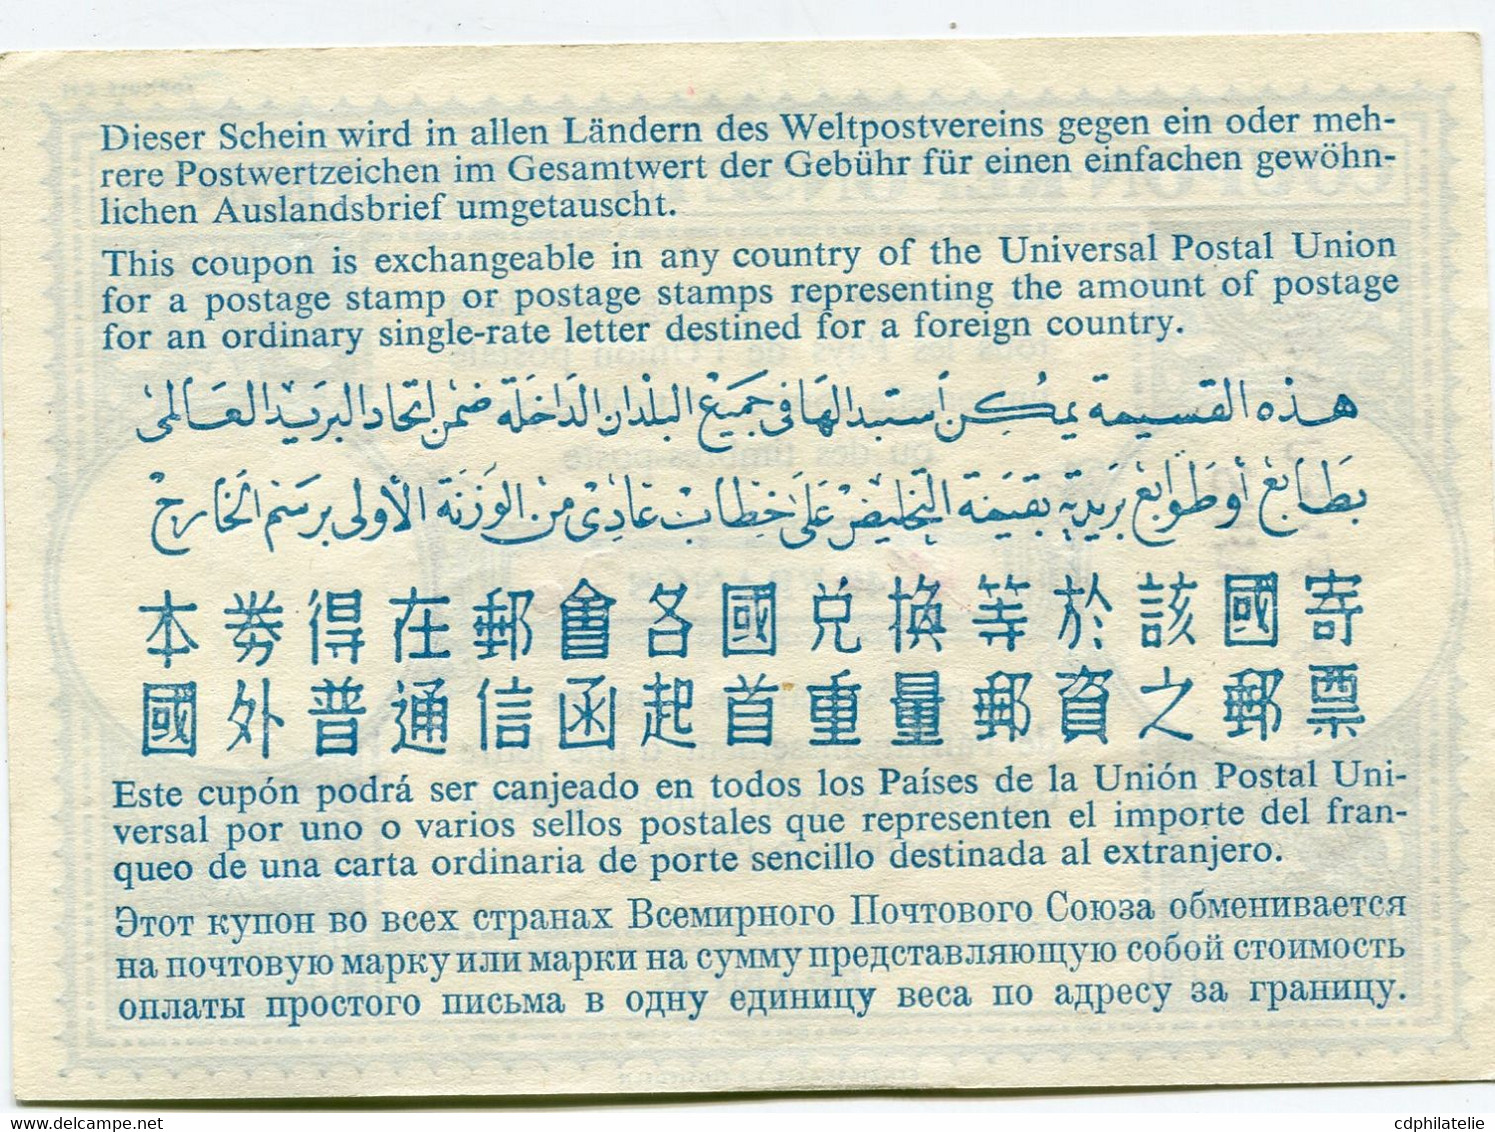 Dieser Schein wird in allen Ländern des Weltpostvereins gegen ein oder meh-
rere Postwertzeichen im Gesamtwert der Gebühr für einen einfachen gewöhn-
lichen Auslandsbrief umgetauscht.
This coupon is exchangeable in any country of the Universal Postal Union
for a postage stamp or postage stamps representing the amount of postage
for an ordinary single-rate letter destined for a foreign country.
هذه القسيمة يمكن استبدالها في جميع البلدان الداخلة ضمن اتحاد البريد العالمى
بطابع أو طوابع بريدية بقيمة التخليص على خطاب عادى من الوزنة الأولى برسم الخارج
本券得在郵會各國兌換等於該國寄
國外普通信函起首重量郵資之郵票
Este cupón podrá ser canjeado en todos los Países de la Unión Postal Uni-
versal por uno o varios sellos postales que representen el importe del fran-
queo de una carta ordinaria de porte sencillo destinada al extranjero.
Этот купон во всех странах Всемирного Почтового Союза обменивается
на почтовую марку или марки на сумму представляющую собой стоимость
оплаты простого письма в одну единицу веса по адресу за границу.
delcampe.net
cdphilatelie